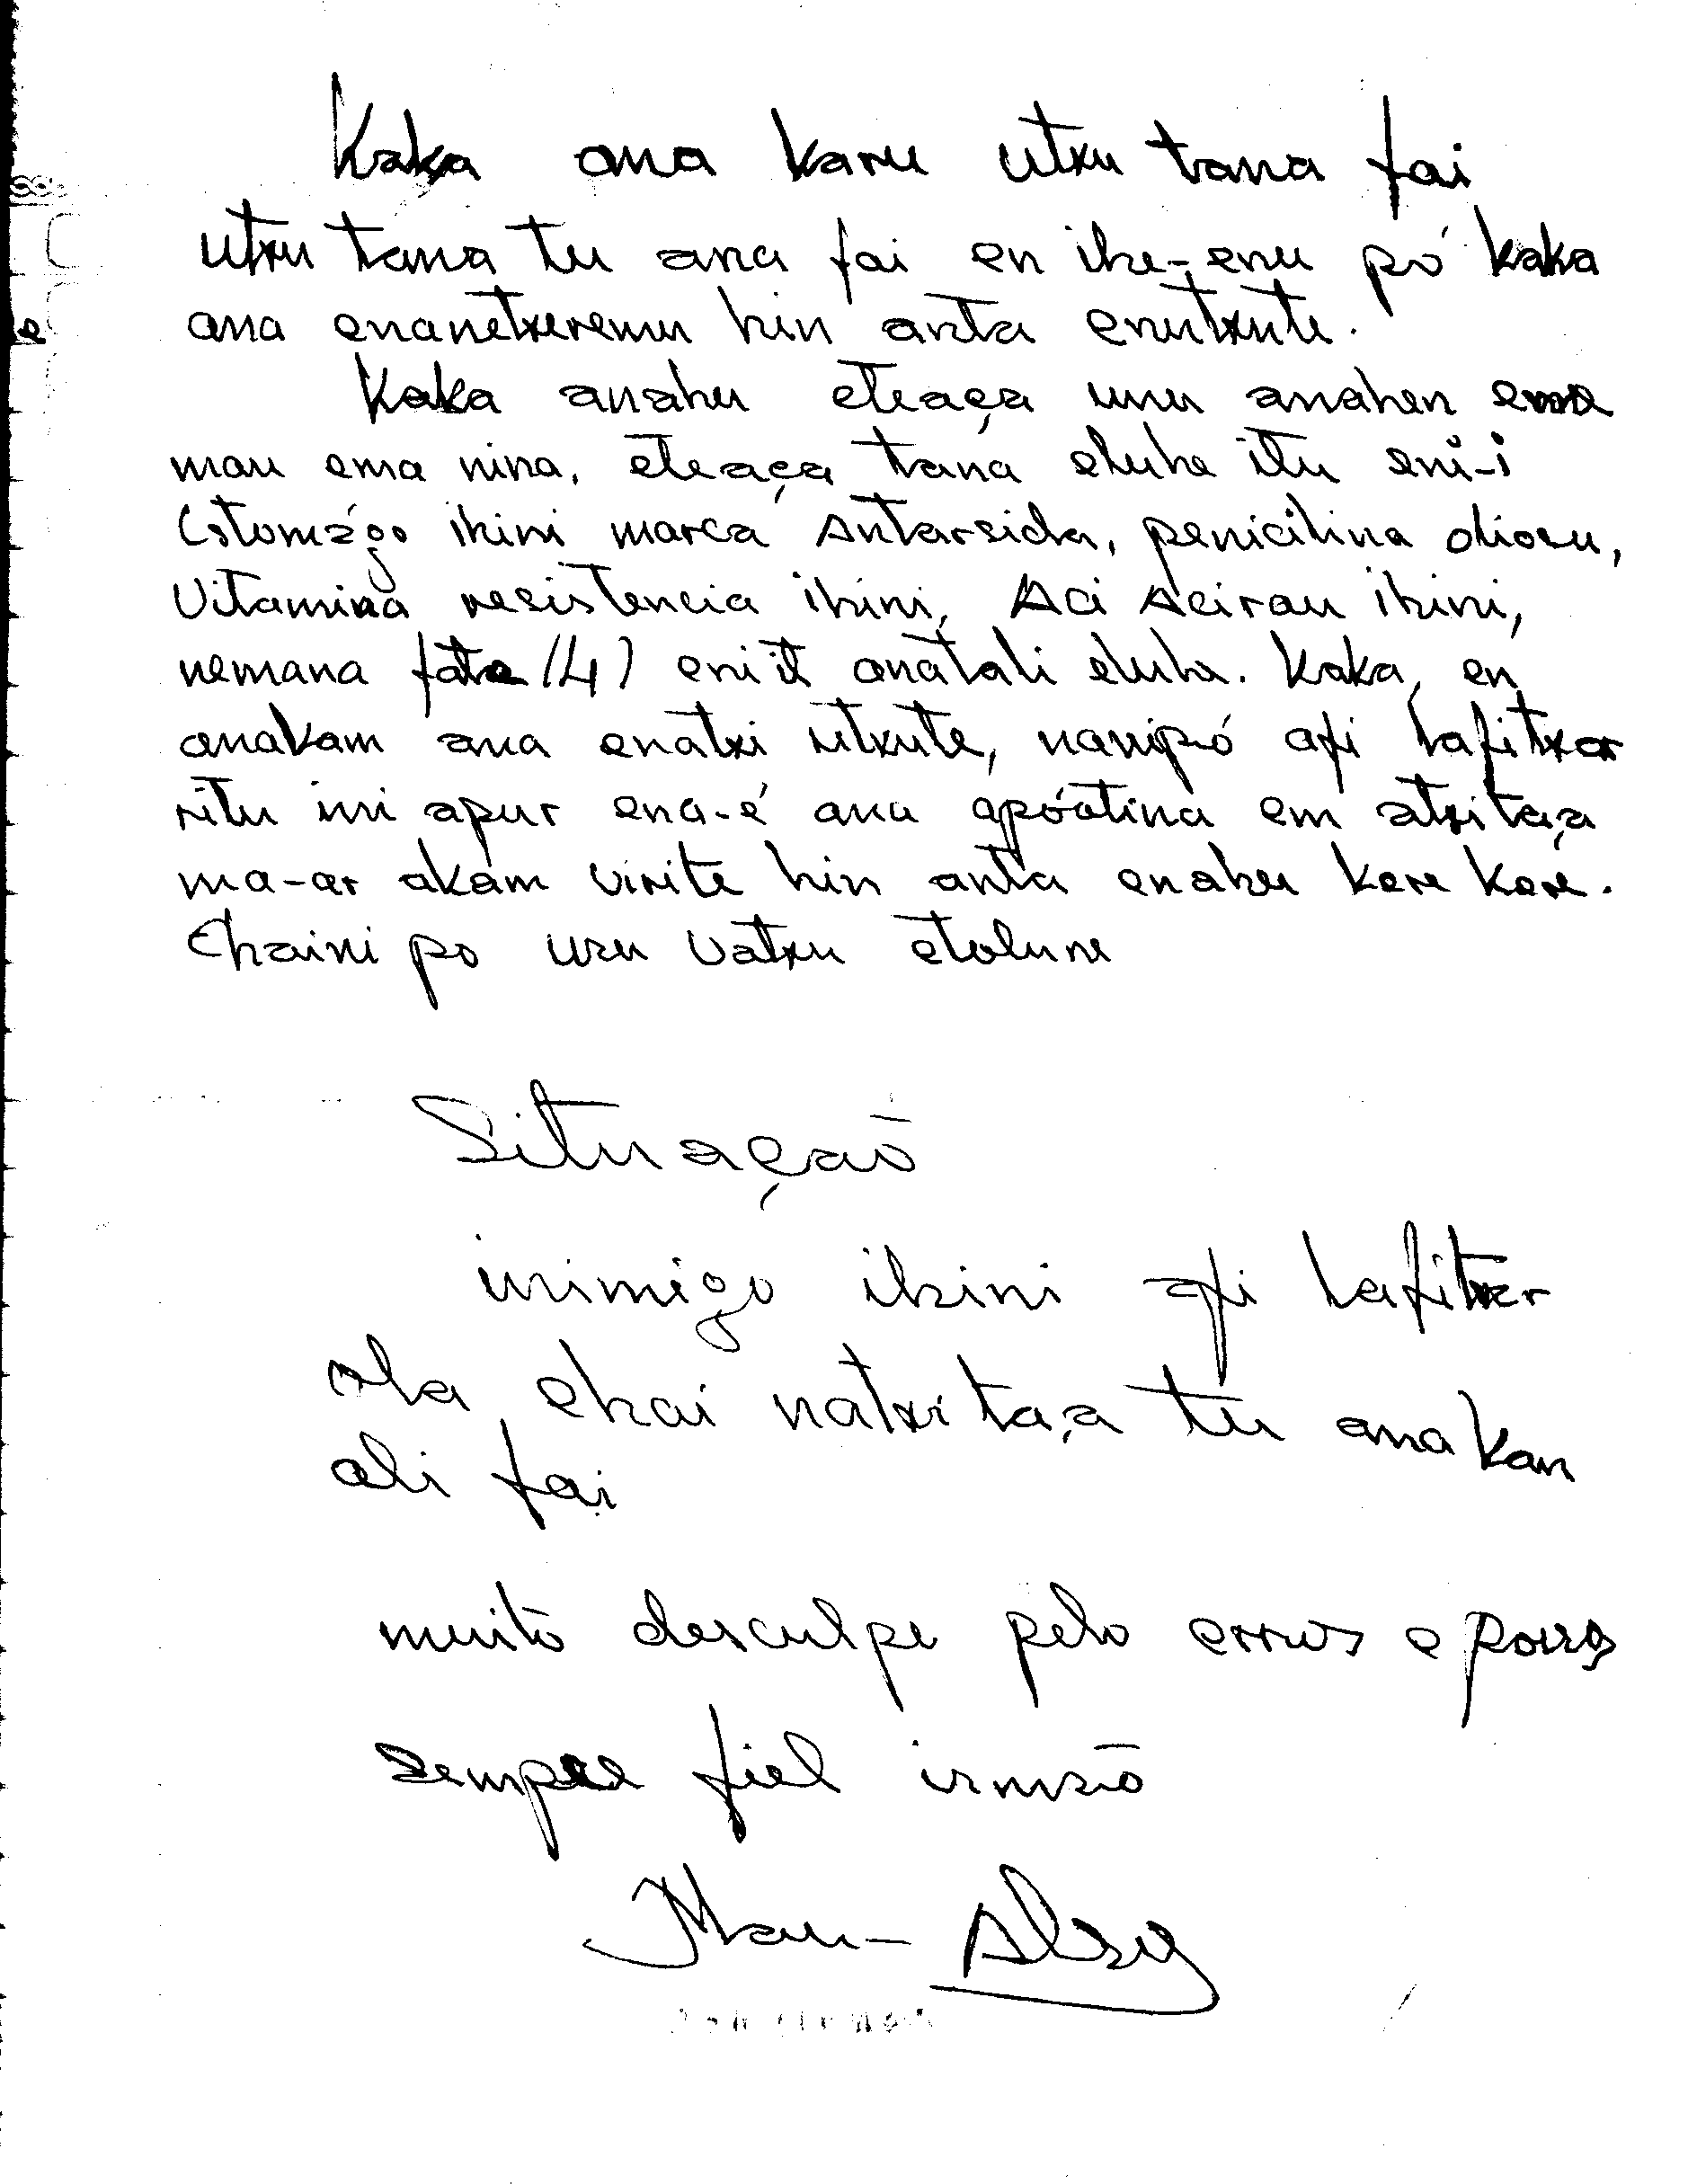 Kaka ana karu utxu tana fai
utxu tana tu ana fai en ihe-enu pó kaka
ana enanetxeremu hin anta enutxute.
Kaka anahu eteaça unu anahen ema
mau ema nina, eteaça tana eluha itu eni-i
Estomágo ikini marca Antarsida, penicilina oliosu,
Vitamina resistencia ikini, Aci Acirau ikini,
nemana fata (4) eni it anatali eluha. Kaka, en
anakam ana enatxi utxute, nanipó afi lafitxar
ritu ini apur ena-é ana apóatina em atxitaça
ma-ar akam virite hin anta enahu kere kere.
Ekaini po uru vatxu etolune
Situação
inimigo ikini afi lafitxar
ekai natxitaça tu anakan
ali fai
muito desculpe pelo errus e
sempre fiel irmaõ
Mau-